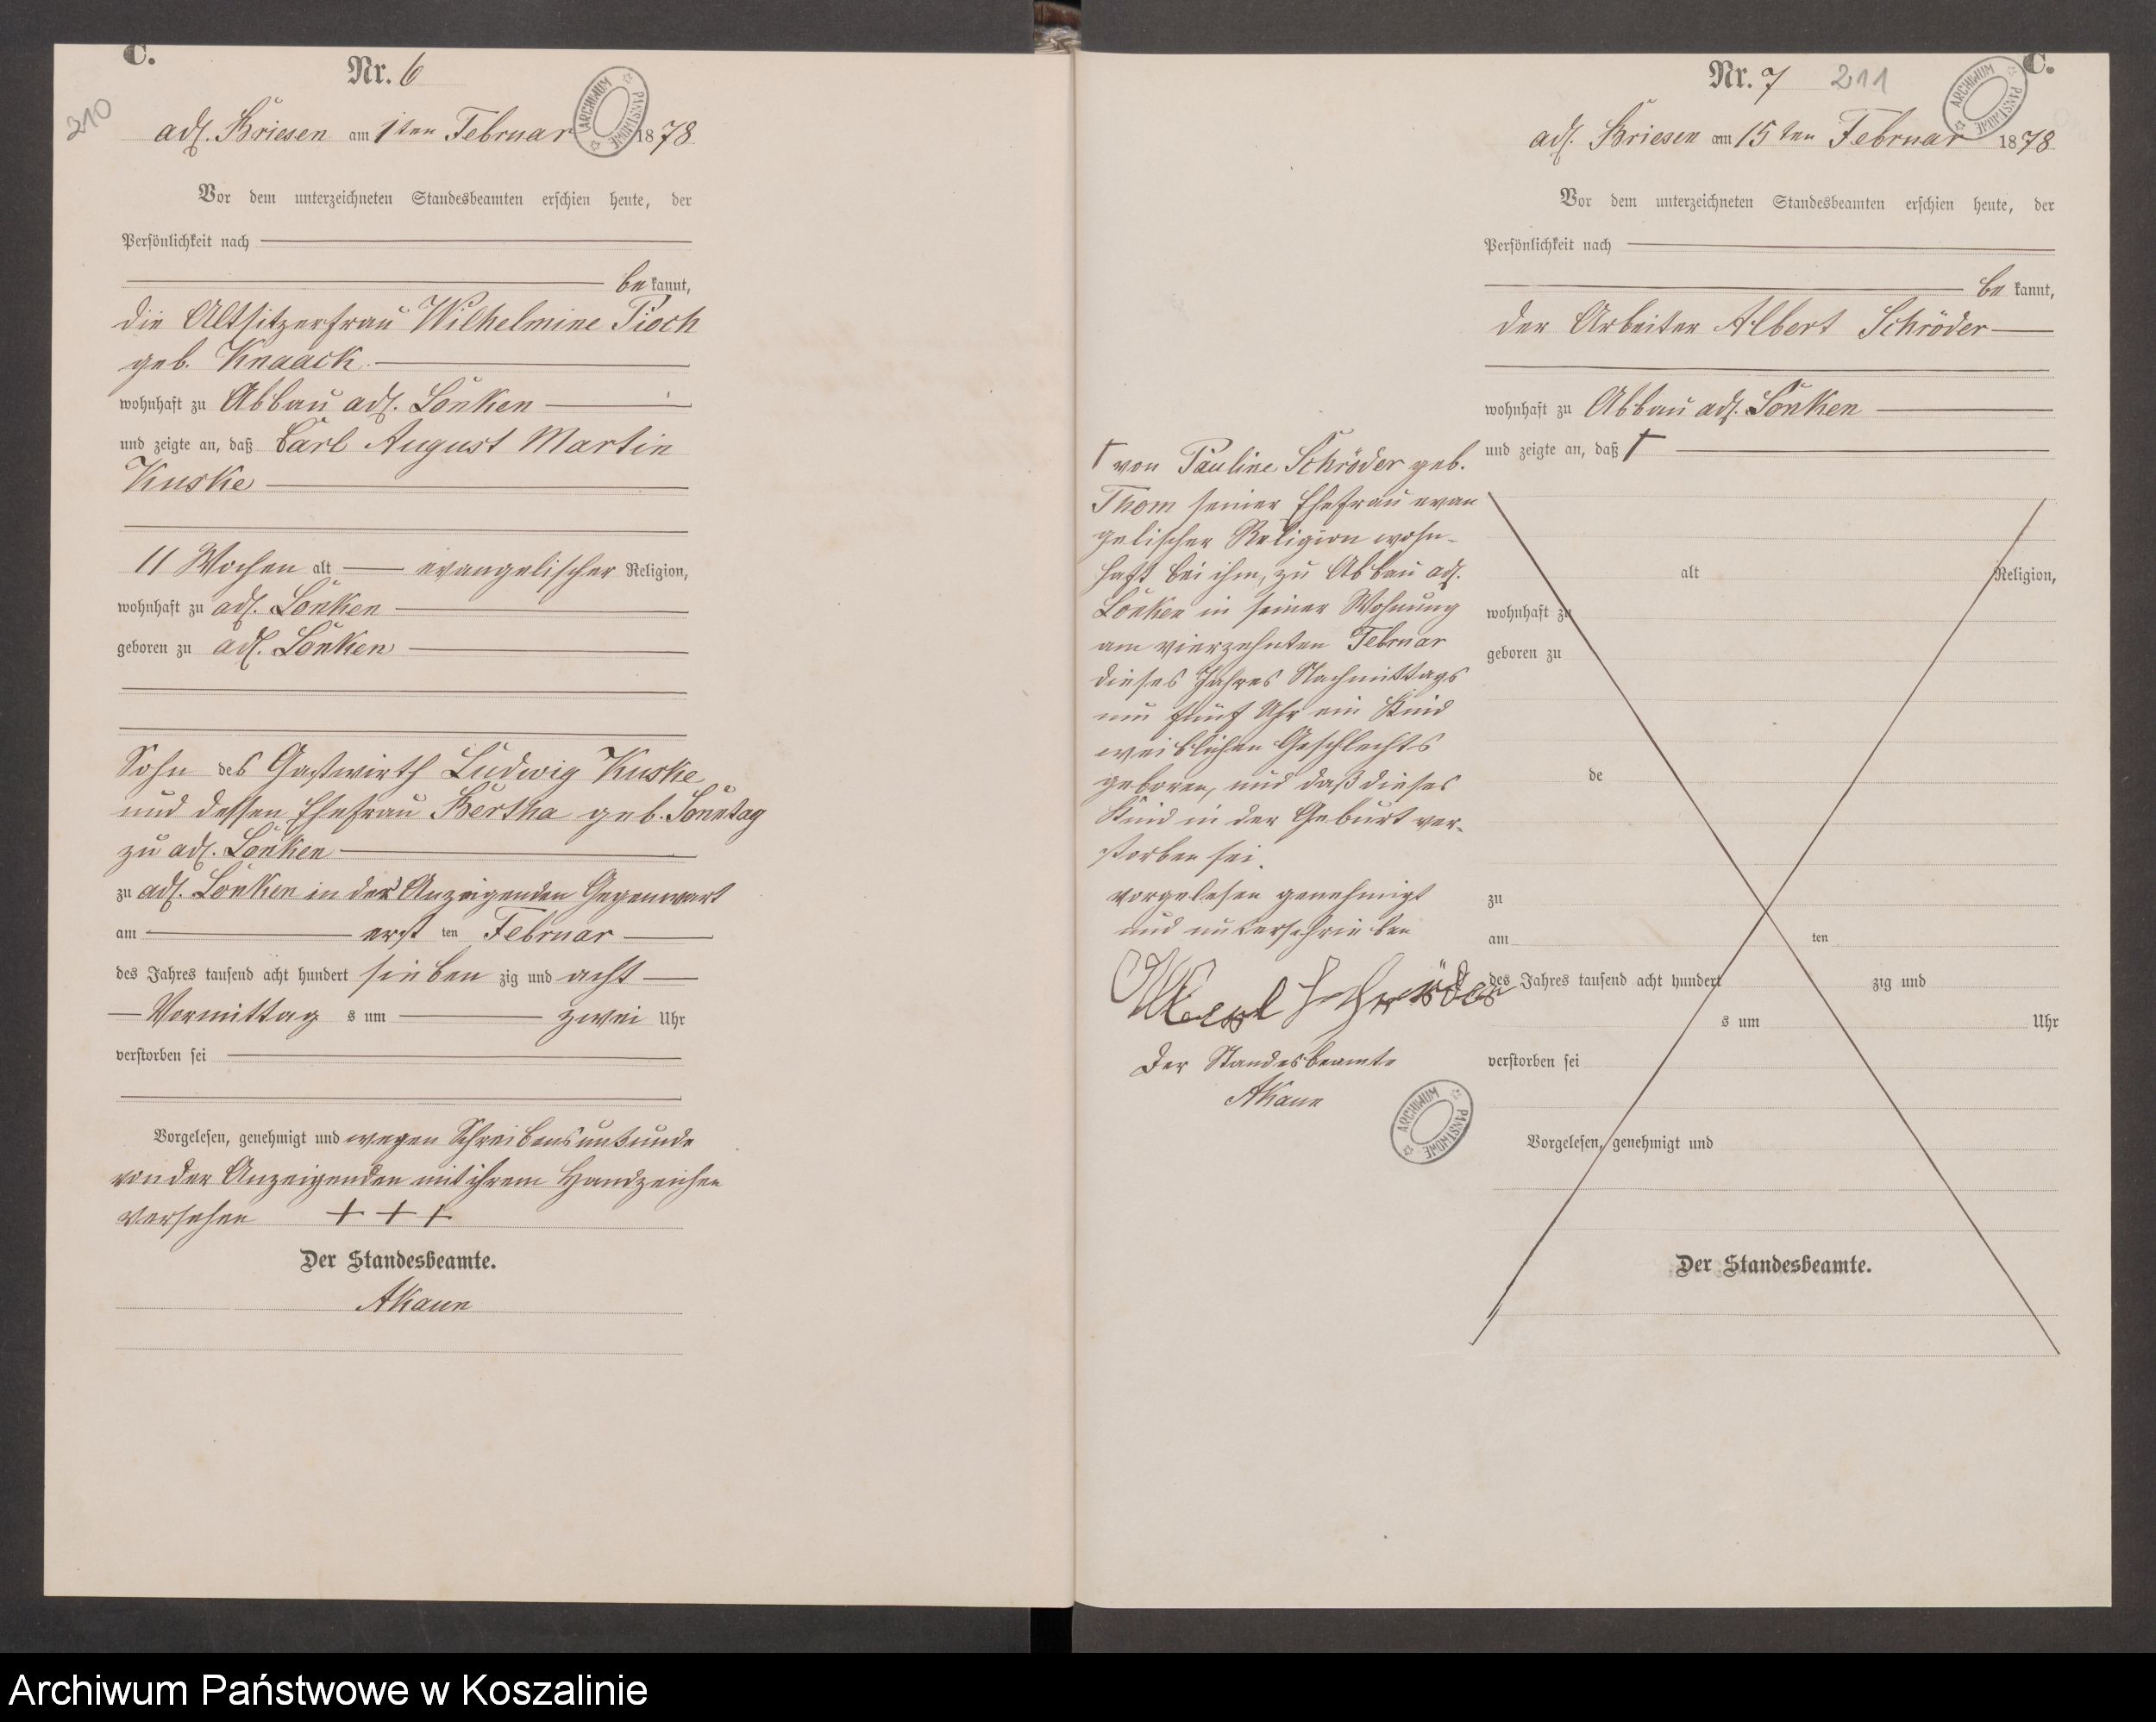 C.
Nr. 6
210
adl. Briesen am 1ten Februar 1878
ARCHIWUM PAŃSTWOWE
Vor dem unterzeichneten Standesbeamten erschien heute, der
Persönlichkeit nach
be kannt,
die Altsitzerfrau Wilhelmine Pioch
geb. Knaack
wohnhaft zu Abbau adl. Lonken
und zeigte an, daß Carl August Martin
Kuske
11 Wochen alt evangelischer Religion,
wohnhaft zu adl. Lonken
geboren zu adl. Lonken
Sohn des Gastwirth Ludwig Kuske
und dessen Ehefrau Bertha geb. Sonntag
zu adl. Lonken
zu adl. Lonken in der Anzeigenden Gegenwart
am erst ten Februar
des Jahres tausend acht hundert sieben zig und acht
Vormittag s um zwei Uhr
verstorben sei
Vorgelesen, genehmigt und wegen Schreibensunkunde
von der Anzeigenden mit ihrem Handzeichen
versehen + + +
Der Standesbeamte.
AKaun
C.
Nr. 7 211
adl. Briesen am 15ten Februar 1878
ARCHIWUM PAŃSTWOWE
Vor dem unterzeichneten Standesbeamten erschien heute, der
Persönlichkeit nach
be kannt,
der Arbeiter Albert Schröder
wohnhaft zu Abbau adl. Lonken
und zeigte an, daß †
† von Pauline Schröder geb.
Thom seiner Ehefrau evan
gelischer Religion wohn-
haft bei ihm, zu Abbau adl.
Lonken in seiner Wohnung
am vierzehnten Februar
dieses Jahres Nachmittags
um fünf Uhr ein Kind
weiblichen Geschlechts
geboren, und daß dieses
Kind in der Geburt ver-
storben sei.
vorgelesen genehmigt
und unterschrieben
Albert Schröder
Der Standesbeamte
AKaun
ARCHIWUM PAŃSTWOWE
alt Religion,
wohnhaft zu
geboren zu
de
zu
am ten
des Jahres tausend acht hundert zig und
s um Uhr
verstorben sei
Vorgelesen, genehmigt und
Der Standesbeamte.
Archiwum Państwowe w Koszalinie